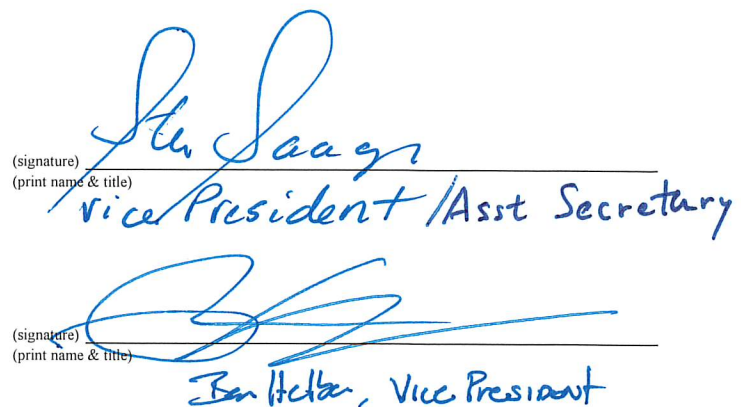 (signature)
(print name & title)
Vice President /Asst Secretary
(signature)
(print name & title)
Ben, Vice President